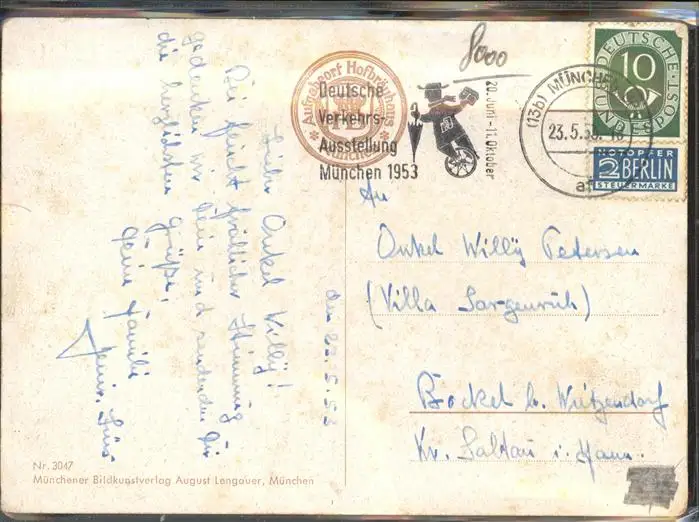 8000
DEUTSCHE
10
BUNDESPOST
NOTOPFER
2 BERLIN
STEUERMARKE
(13b) MÜNCHEN
23.5.53
Aufgabeort Hofbräuhaus
HB
München
Deutsche
Verkehrs-
Ausstellung
München 1953
20. Juni - 11. Oktober
den 23.5.53
Lieber Onkel Willy!
Bei feucht fröhlicher Stimmung
gedenken wir Dein und senden Dir
die herzlichsten Grüße,
Deine Familie
An
Onkel Willy Petersen
(Villa Sorgenruh)
Bockel b. Wietzendorf
Kr. Soltau i. Hann.
Nr. 3047
Münchener Bildkunstverlag August Lengauer, München